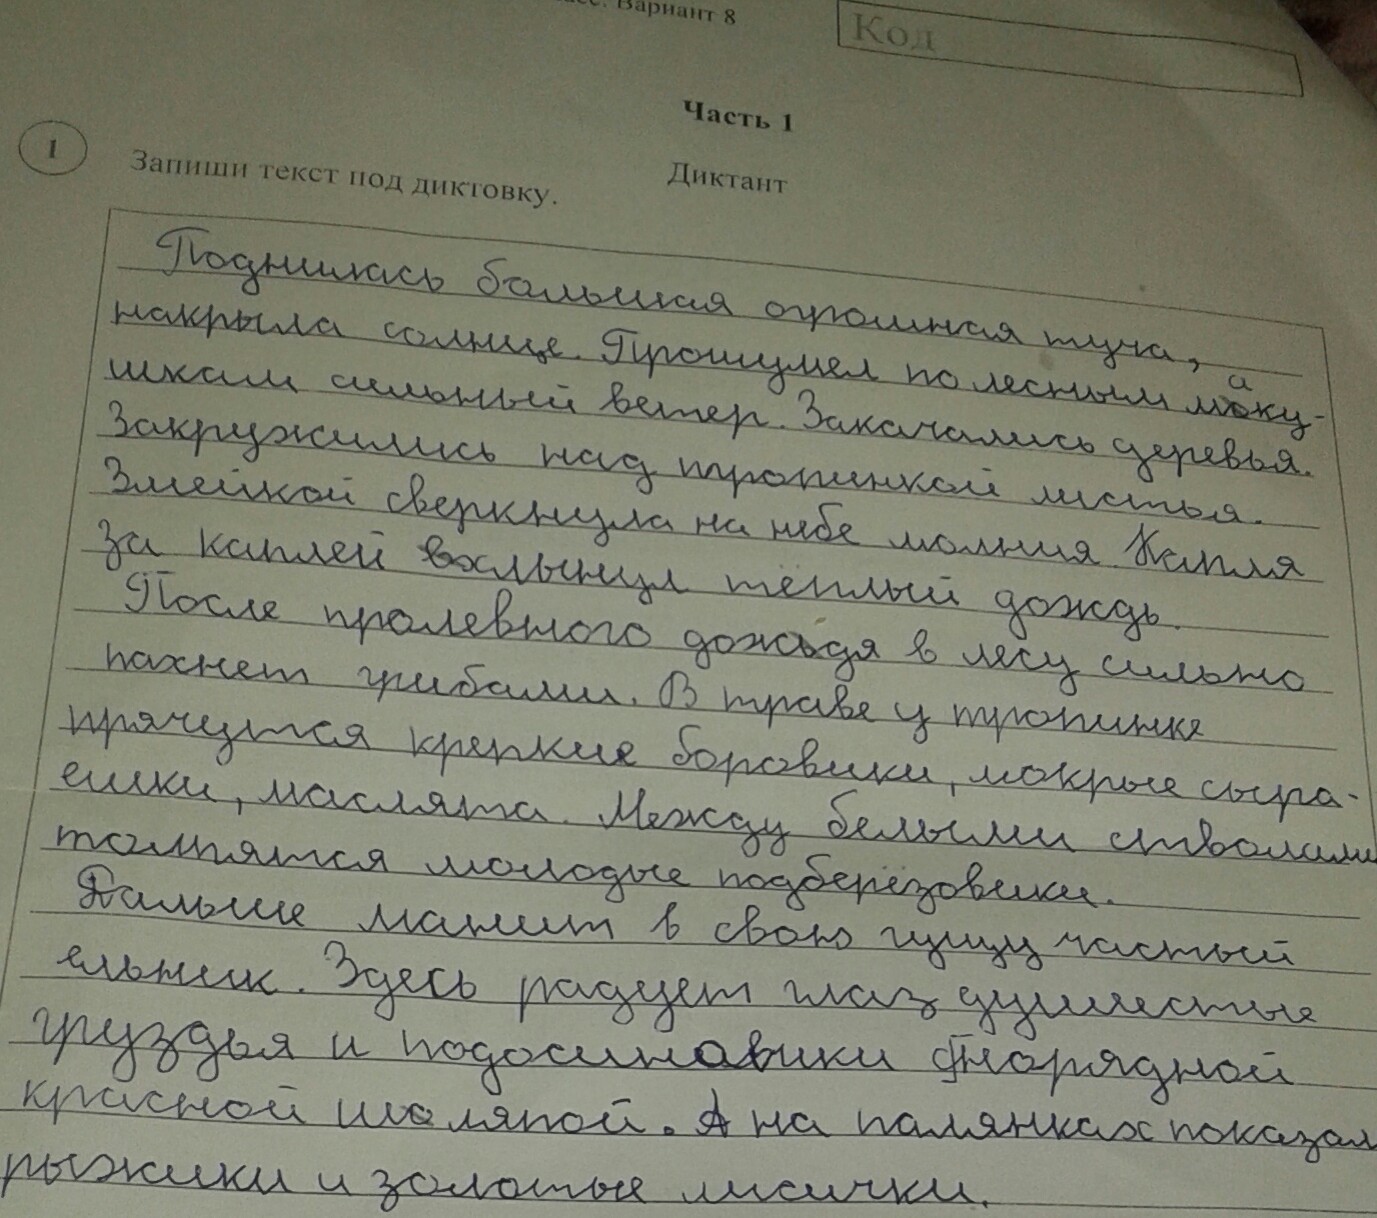 Вариант 8
Код
Часть 1
1
Диктант
Запиши текст под диктовку.
Поднилась большая огромная туча,
накрыла солнце. Прошумел по лесным маку-
шкам сильный ветер. Закачались деревья.
Закружились над тропинкой листья.
Змейкой сверкнула на небе молния Капля
за каплей вхлынул тёплый дождь.
После пролевного дождя в лесу сильно
пахнет грибами. В траве у тропинке
прячутся крепкие боровики, мокрые сыра-
ешки, маслята. Между белыми стволами
толпятся молодые подберёзовики.
Дальше манит в свою гущу частый
ельник. Здесь радует глаз душистые
груздья и подосинавики снорядной
красной шаляпой. А на палянках показал
рыжики и золотые лисички.